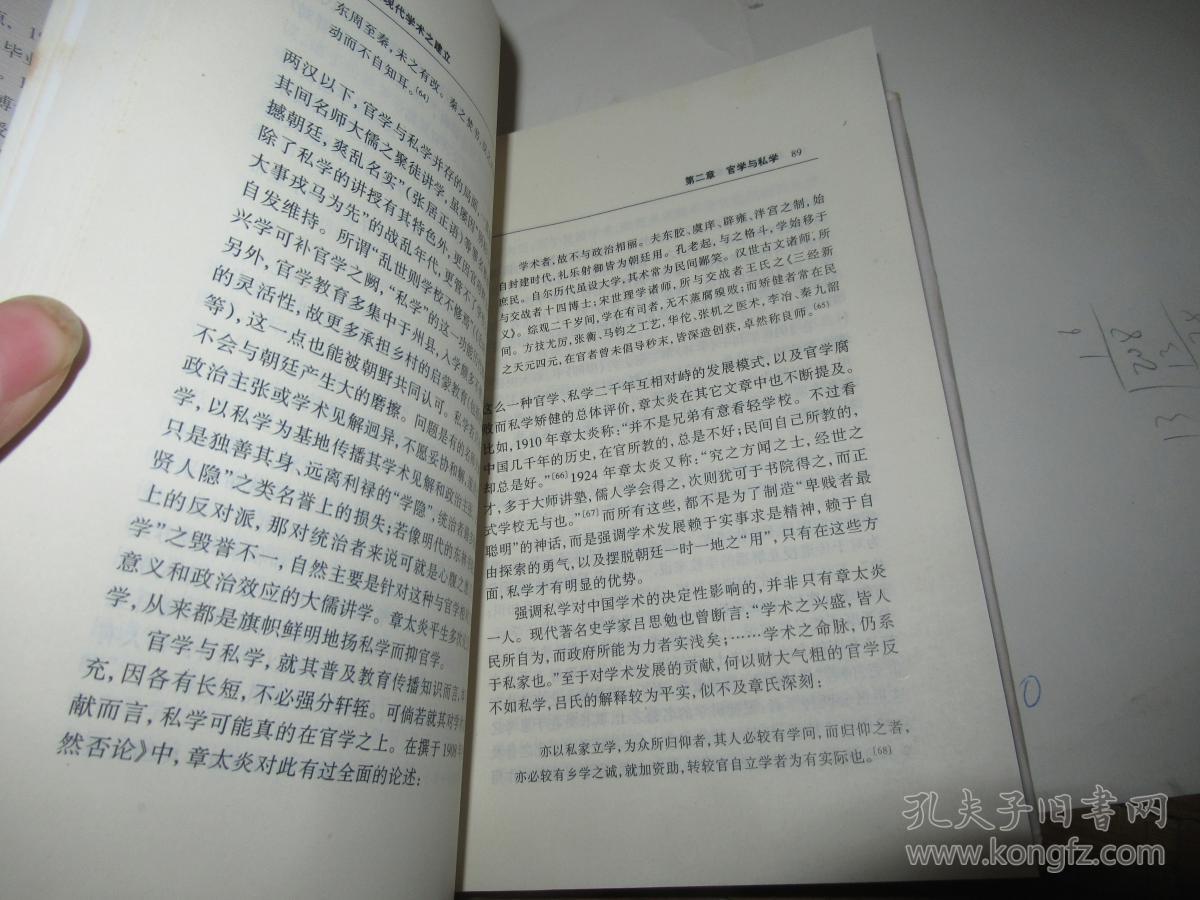 现代学术之建立
东周至秦,未之有改。秦之焚书,
动而不自知耳。〔64〕
两汉以下,官学与私学并存的局面,
其间名师大儒之聚徒讲学,虽屡因
撼朝廷,爽乱名实”(张居正语)等罪名
除了私学的讲授有其特色外,更因官
大事戎马为先”的战乱年代,更管不了学
自发维持。所谓“乱世则学校不修焉”
兴学可补官学之阙,“私学”的这一功能
另外,官学教育多集中于州县,入学
的灵活性,故更多承担乡村的启蒙教育
等),这一点也能被朝野共同认可。私学
不会与朝廷产生大的磨擦。问题是有的名
政治主张或学术见解迥异,不愿妥协和
学,以私学为基地传播其学术见解和政治主
只是独善其身、远离利禄的“学隐”,统治者
贤人隐”之类名誉上的损失;若像明代的东林
上的反对派,那对统治者来说可就是心腹之
学”之毁誉不一,自然主要是针对这种与官学相
意义和政治效应的大儒讲学。章太炎平生多
学,从来都是旗帜鲜明地扬私学而抑官学。
官学与私学,就其普及教育传播知识而言,
充,因各有长短,不必强分轩轾。可倘若就其对学
献而言,私学可能真的在官学之上。在撰于1908
然否论》中,章太炎对此有过全面的论述:
第二章 官学与私学 89
学术者,故不与政治相丽。夫东胶、虞庠、辟雍、泮宫之制,始
自封建时代,礼乐射御皆为朝廷用。孔老起,与之格斗,学始移于
庶民。自尔历代虽设大学,其术常为民间鄙笑。汉世古文诸师,所
与交战者十四博士;宋世理学诸师,所与交战者王氏之《三经新
义》。综观二千岁间,学在有司者,无不蒸腐殠败;而矫健者常在民
间。方技尤厉,张衡、马钧之工艺,华佗、张机之医术,李冶、秦九韶
之天元四元,在官者曾未倡导秒末,皆深造创获,卓然称良师。〔65〕
这么一种官学、私学二千年互相对峙的发展模式,以及官学腐
败而私学矫健的总体评价,章太炎在其它文章中也不断提及。
比如,1910年章太炎称:“并不是兄弟有意看轻学校。不过看
中国几千年的历史,在官所教的,总是不好;民间自己所教的,
却总是好。”〔66〕1924年章太炎又称:“究之方闻之士,经世之
才,多于大师讲塾,儒人学会得之,次则犹可于书院得之,而正
式学校无与也。”〔67〕而所有这些,都不是为了制造“卑贱者最
聪明”的神话,而是强调学术发展赖于实事求是精神,赖于自
由探索的勇气,以及摆脱朝廷一时一地之“用”,只有在这些方
面,私学才有明显的优势。
强调私学对中国学术的决定性影响的,并非只有章太炎
一人。现代著名史学家吕思勉也曾断言:“学术之兴盛,皆人
民所自为,而政府所能为力者实浅矣;……学术之命脉,仍系
于私家也。”至于对学术发展的贡献,何以财大气粗的官学反
不如私学,吕氏的解释较为平实,似不及章氏深刻:
亦以私家立学,为众所归仰者,其人必较有学问,而归仰之者,
亦必较有乡学之诚,就加资助,转较官自立学者为有实际也。〔68〕
16
13
208
13
孔夫子旧书网
www.kongfz.com